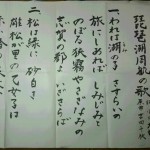 琵琶湖周航の歌
一、われは湖の子 さすらいの
旅にしあれば しみじみと
のぼる狭霧や さざなみの
志賀の都よ いざさらば
二、松は緑に 砂白き
雄松が里の 乙女子は